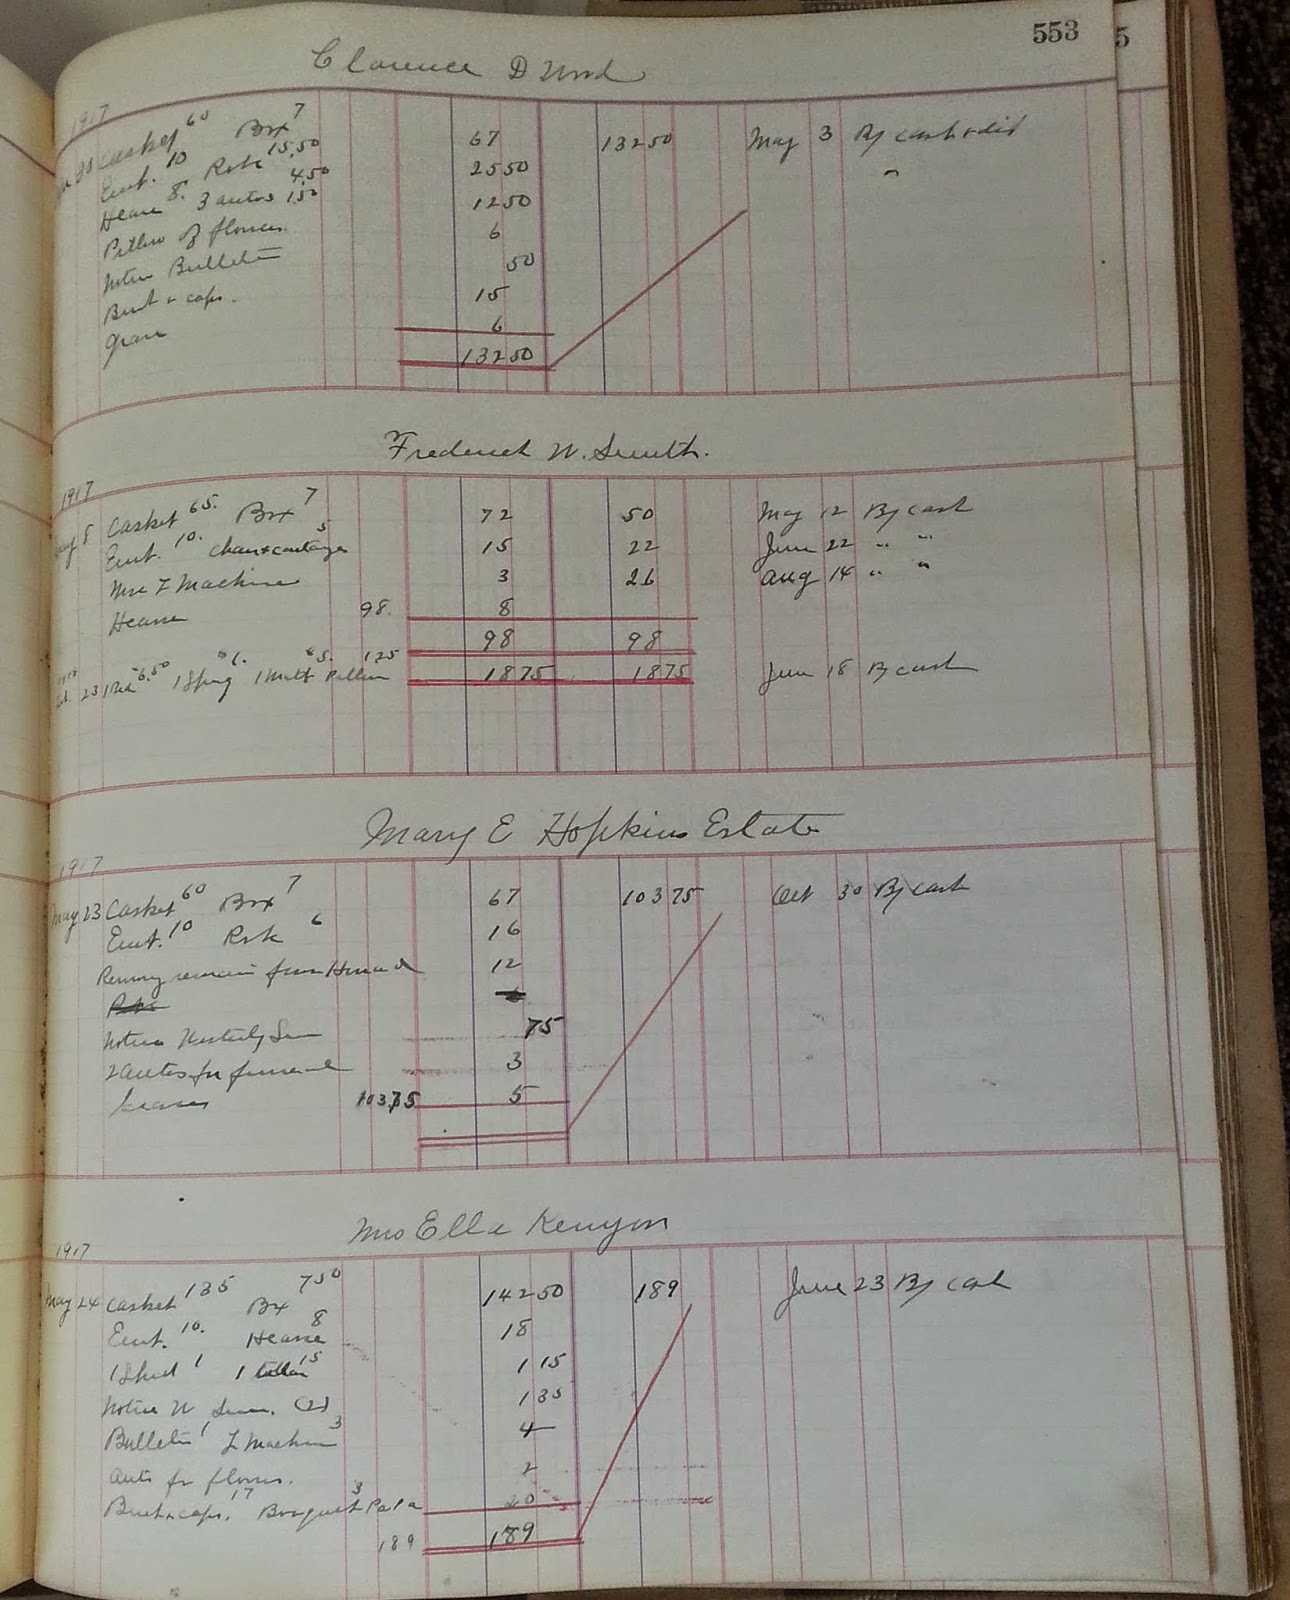 553
5
Clarence D Wood
1917
20 Casket 60 Box 7 67 132 50 May 3 By cash + dis
Emt. 10 Robe 15.50 25 50 "
Hearse 8. 3 autos 4.50 1.50 12 50
Pillow of flowers 6
Notice Bulletin 50
Burt + caps. 15
Grave 6
132 50
Frederick W. Smith.
1917
May 8 Casket 65. Box 7 72 50 May 12 By cash
Emt. 10. Chairs + cartage 5 15 22 June 22 " "
Use L Machine 3 26 Aug 14 " "
Hearse 98. 8
98 98
23 1 Bed 6.50 1 Spring 6. 1 Matt 5. Pillow 1.25 18 75 18 75 June 18 By cash
Mary E Hopkins Estate
1917
May 23 Casket 60 Box 7 67 103 75 Oct 30 By cash
Emt. 10 Robe 6 16
Removing remains from Howard 12
Robe
Notice Westerly Sun 75
2 autos for funeral 3
103.75 5
Mrs Ella Kenyon
1917
May 24 Casket 135 Box 7 50 142 50 189 June 23 By cash
Emt. 10. Hearse 8 18
1 1 15 1 15
Notice W Sun. (2) 1 35
Bulletin 1 L Machine 3 4
Auto for flowers. 2
Burt + caps. 17 Bouquet 3 20
189 189